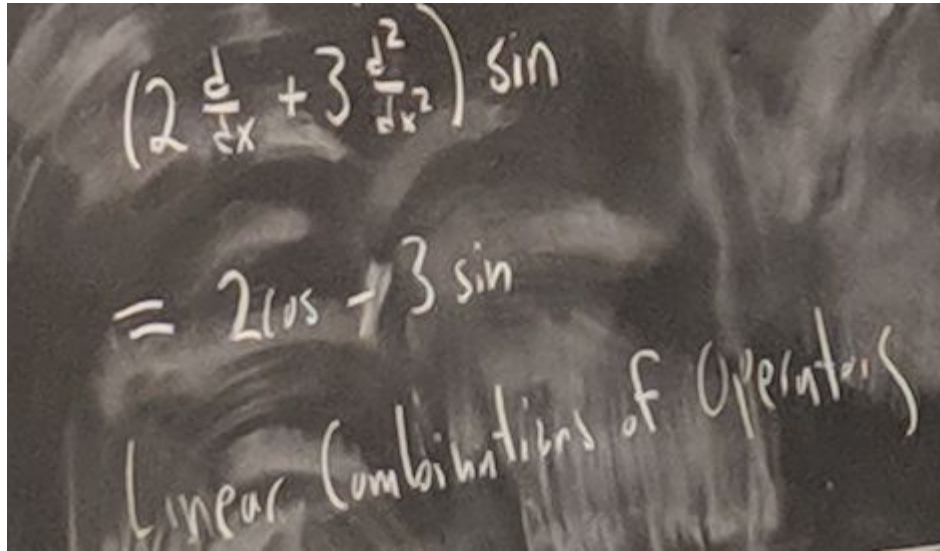 (2 d/dx + 3 d²/dx²) sin
= 2cos - 3 sin
Linear Combinations of Operators